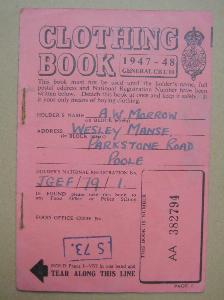 CLOTHING
BOOK 1947-48
GENERAL CB 1/10
This book must not be used until the holder's name, full
postal address and National Registration Number have been
written below. Detach this book at once and keep it safely. It
is your only means of buying clothing.
HOLDER'S NAME A.W. MORROW
(in BLOCK letters)
ADDRESS WESLEY MANSE,
(in BLOCK letters)
PARKSTONE ROAD
POOLE
HOLDER'S NATIONAL REGISTRATION No.
JGEF/79/1
IF FOUND please take this book to
any Food Office or Police Station
FOOD OFFICE CODE No.
S 73.
THIS BOOK IS NUMBER
AA 382794
HOLD Pages I-VIII in one hand and
TEAR ALONG THIS LINE
PAGE I